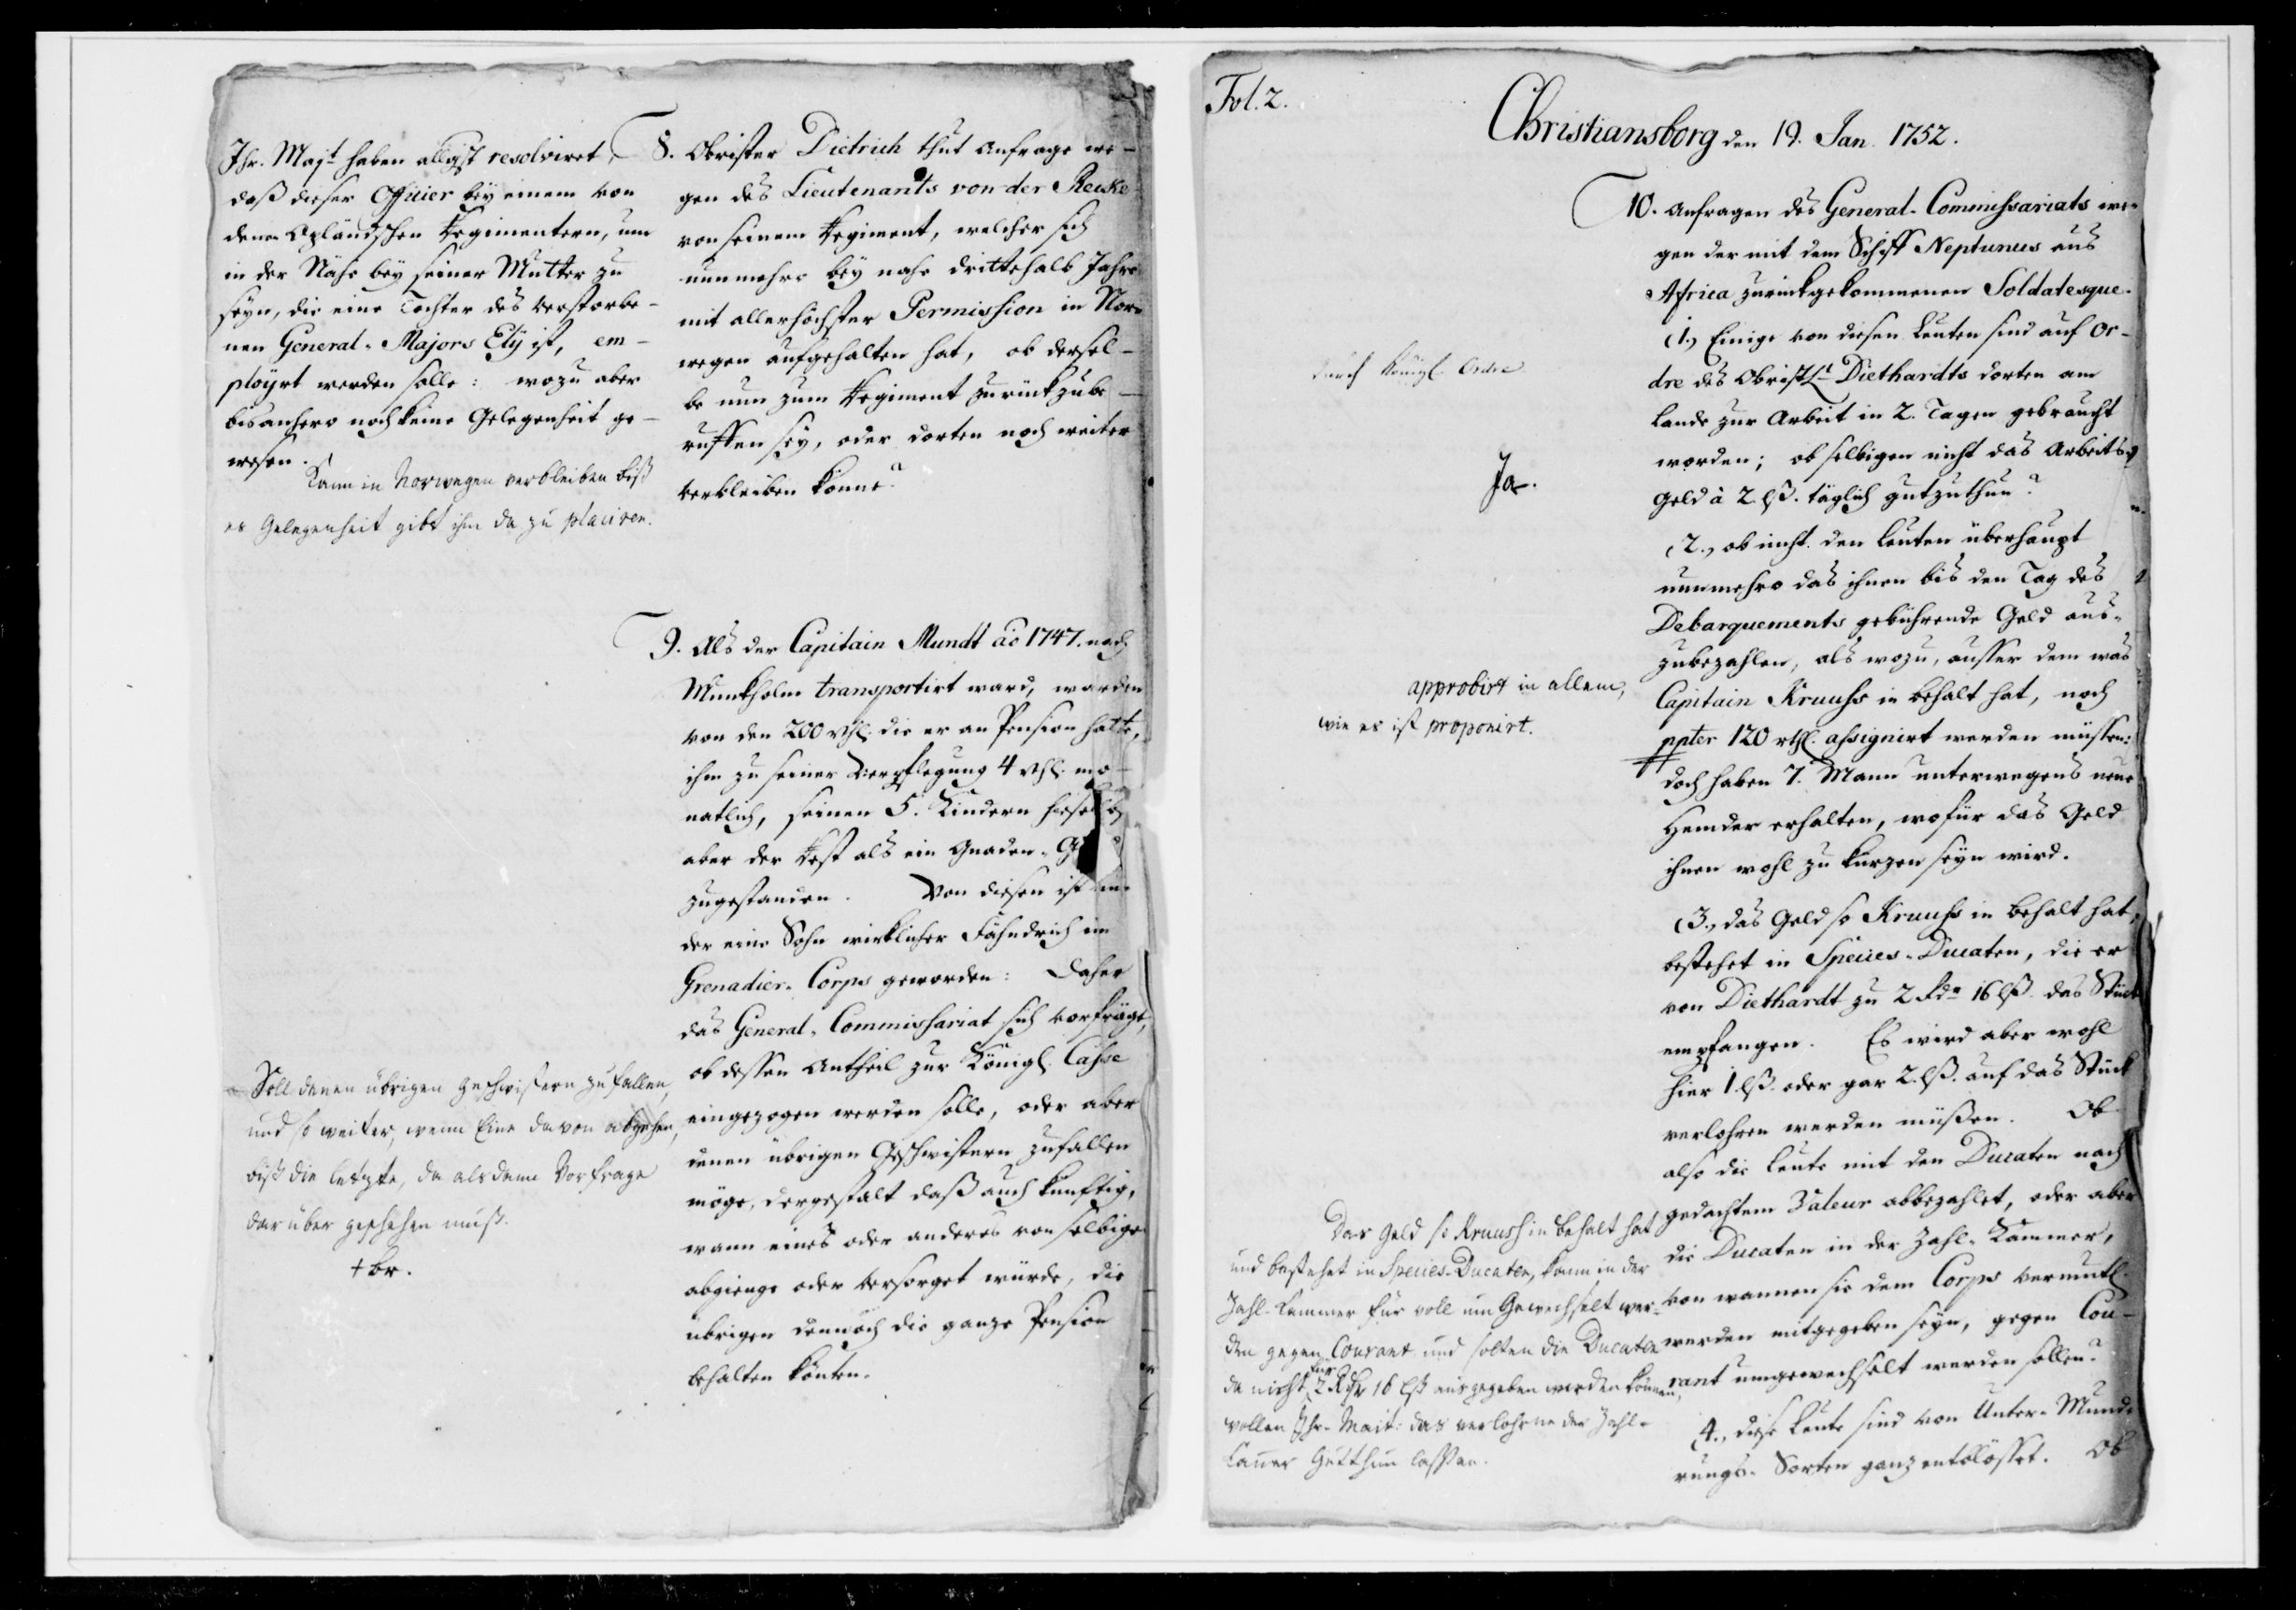 Ihr. Majt. haben allgst resolviret,
daß dieser Officier bey einem von
denen Opländschen Regimentern, um
in der Nähe bey seiner Mutter zu
seyn, die eine Tochter des verstorbe-
nen General-Majors Ely ist, em-
ployrt werden solle: wozu aber
bis anhero noch keine Gelegenheit ge-
wesen.
Kann in Norwegen verbleiben biß
es Gelegenheit gibt ihm da zu placiren.
8. Obrister Dietrich thut Anfrage we-
gen des Lieutenants von der Recke
von seinem Regiment, welcher sich
nunmehro bey nahe drittehalb Jahre
mit allerhöchster Permission in Nor-
wegen aufgehalten hat, ob dersel-
be nun zum Regiment zurückzube-
ruffen sey, oder dorten noch weiter
verbleiben könne?
9. Als der Capitain Mundt aō 1747. nach
Munkholm transportirt ward, wurden
von den 200 rthl. die er an Pension hatte,
ihm zu seiner Verpflegung 4 rthl. mo-
natlich, seinen 5. Kindern hieselbst
aber der Rest als ein Gnaden-
zugestanden. Von diesen ist
der eine Sohn wirklicher Fähndrich im
Grenadier-Corps geworden: Daher
das General-Commissariat sich vorfräget,
ob dessen Antheil zur Königl. Casse
eingezogen werden solle, oder aber
denen übrigen Geschwistern zufallen
möge, dergestalt daß auch künftig,
wann eines oder anderes von selbigen
abgienge oder versorget würde, die
übrigen dennoch die ganze Pension
behalten könten.
Soll denen übrigen geschwistern zufallen,
und so weiter, wenn Eine davon abgehen,
biß die letzte, da alsdann Vorfrage
darüber geschehen muß.
+ br.
Fol. 2.
Christiansborg den 19. Jan. 1752.
10. Anfragen des General-Commissariats we-
gen der mit dem Schiff Neptunus aus
Africa zurückgekommenen Soldatesque.
(1.) Einige von diesen Leuten sind auf Or-
dre des Obristlt. Diethardts dorten am
Lande zur Arbeit in 2. Tagen gebraucht
worden; ob selbigen nicht das Arbeits-
Geld à 2 lß. täglich gutzuthun?
durch Königl. Ordre
Ja.
(2.) ob nicht den Leuten überhaupt
nunmehro das ihnen bis den Tag des
Debarquements gebührende Geld aus-
zubezahlen, als wozu, ausser dem was
Capitain Kruuhs in behalt hat, noch
ppter 120 rthl. assignirt werden müssen:
doch haben 7. Mann unterwegens neue
Hemder erhalten, wofür das Geld
ihnen wohl zu kürzen seyn wird.
approbirt in allem,
wie es ist proponirt.
(3.) das Geld so Kruuhs in behalt hat,
bestehet in Species-Ducaten, die er
von Diethardt zu 2 Rdr 16 lß. das Stück
empfangen. Es wird aber wohl
hier 1. lß. oder gar 2. lß. auf das Stück
verlohren werden müßen. Ob
also die Leute mit den Ducaten nach
gedachtem Valeur abbezahlet, oder aber
die Ducaten in der Zahl-Kammer,
von wannen sie dem Corps vermuthl.
werden mitgegeben seyn, gegen Cou-
rant umgewechselt werden sollen?
Das Geld so Kruush in behalt hat
und bestehet in Species-Ducaten, kann in der
Zahl-Kammer für voll um Gewechselt wer-
den gegen Courant und solten die Ducaten
da nicht für 2 Rdr 16 lß ausgegeben werden können,
wollen Ihr. Mait: das verlohrne der Zahl-
Kammer Gutthun lassen.
4., diese Leute sind von Unter-Mundi-
rungs-Sorten ganz entblösset. Ob